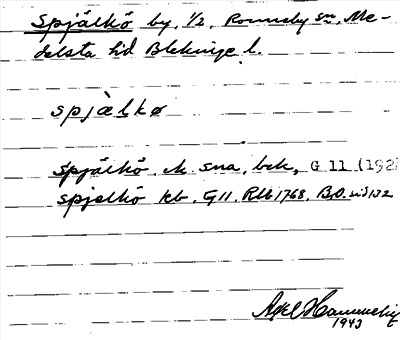 Spjälkö by, 1/2, Ronneby sn, Me-
delsta hd Blekinge l.
spjàlkø
Spjälkö, ek sna, bek, G 11 (192
spjelkö kb, G 11, Rlb 1768, B.O. sid 132
Axel
1943